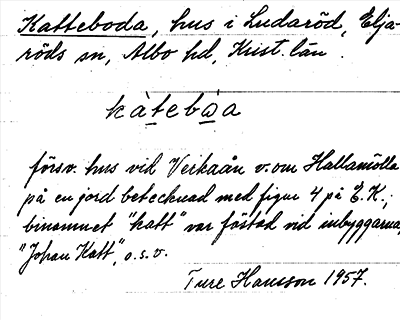 Katteboda, hus i Ludaröd, Eljaröds sn, Albo hd, Krist. län.
kàtebòa
försv. hus vid Verkaån v. om Hallamölla
på en jord betecknad med figur 4 på E.K.;
binamnet "katt" var fästad vid inbyggarna,
"Johan Katt", o.s.v.
Ture Hansson 1957.